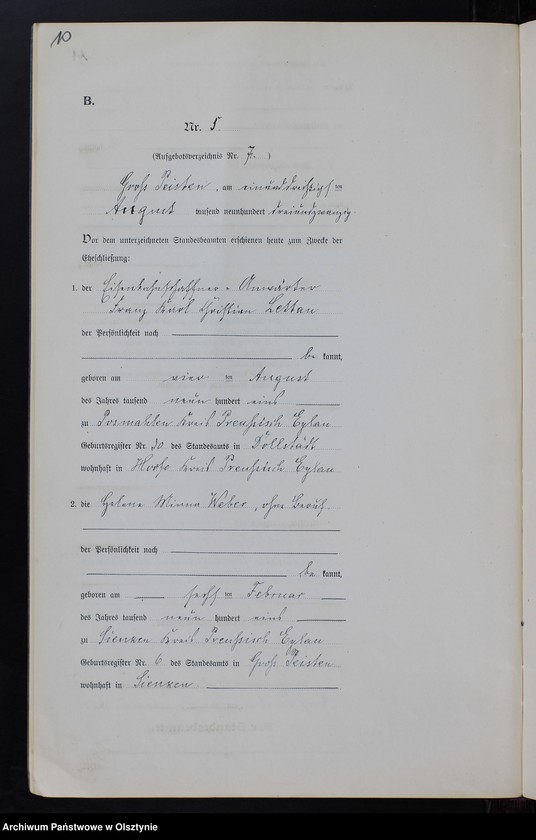 10
B.
Nr. 5.
(Aufgebotsverzeichnis Nr. 7. )
Groß Peisten, am einunddreißigsten
August tausend neunhundert dreiundzwanzig.
Vor dem unterzeichneten Standesbeamten erschienen heute zum Zwecke der
Eheschließung:
1. der Eisenbahnschaffner-Anwärter
Franz Karl Christian Lettau
der Persönlichkeit nach
be kannt,
geboren am vier ten August
des Jahres tausend neun hundert eins
zu Posmahlen Kreis Preußisch Eylau
Geburtsregister Nr. 30 des Standesamts in Döllstädt
wohnhaft in Hoofe Kreis Preußisch Eylau
2. die Helene Minna Weber, ohne Beruf.
der Persönlichkeit nach
be kannt,
geboren am sechs ten Februar
des Jahres tausend neun hundert eins
zu Sienken Kreis Preußisch Eylau
Geburtsregister Nr. 6 des Standesamts in Groß Peisten
wohnhaft in Sienken
Archiwum Państwowe w Olsztynie